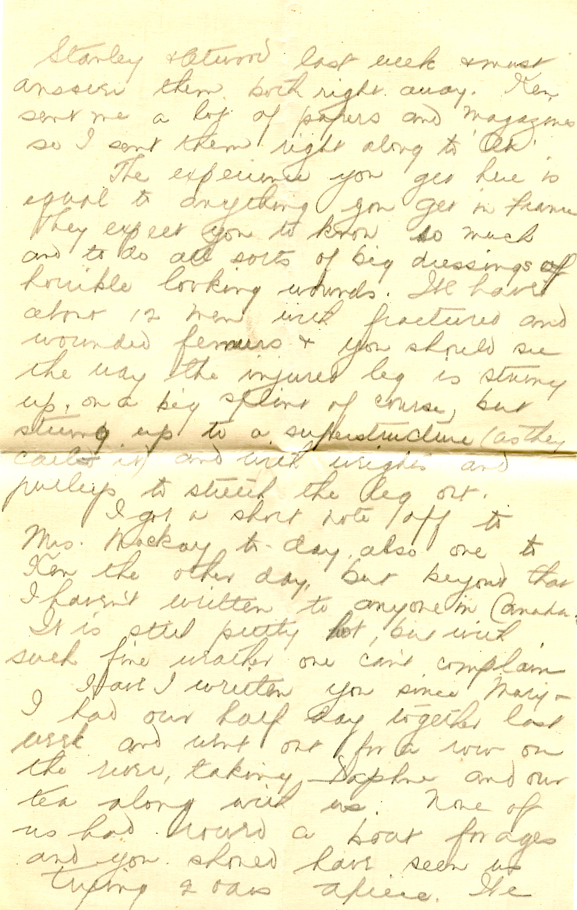 Stanley & Atwood last week & must
answer them both right away. Ken
sent me a lot of papers and magazines
so I sent them right along to
The experience you get here is
equal to anything you get in France
They expect you to know so much
and to do all sorts of big dressings of
horrible looking wounds. We have
about 12 men with fractured and
wounded femurs & you should see
the way the injured leg is strung
up, on a big splint of course, but
strung up to a superstructure (as they
call it) and with weights and
pulleys to stretch the leg out.
I got a short note off to
Mrs. Mackay to-day, also one to
Ken the other day, but beyond that
I haven't written to anyone in Canada.
It is still pretty hot, but with
such fine weather one can't complain
Have I written you since Mary -
I had our half day together last
week and went out for a row on
the river, taking Daphne and our
tea along with us. None of
us had rowed a boat for ages
and you should have seen us
trying 2 oars apiece. We